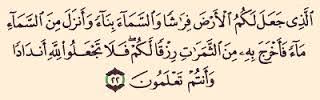 الَّذِي جَعَلَ لَكُمُ الْأَرْضَ فِرَاشًا وَالسَّمَاءَ بِنَاءً وَأَنزَلَ مِنَ السَّمَاءِ
مَاءً فَأَخْرَجَ بِهِ مِنَ الثَّمَرَاتِ رِزْقًا لَّكُمْ ۖ فَلَا تَجْعَلُوا لِلَّهِ أَندَادًا
وَأَنتُمْ تَعْلَمُونَ ٢٢